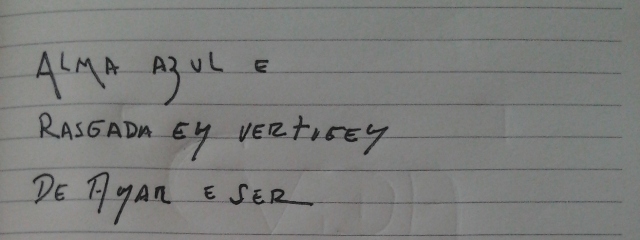 ALMA AZUL E
RASGADA EM VERTIGEM
DE AMAR E SER